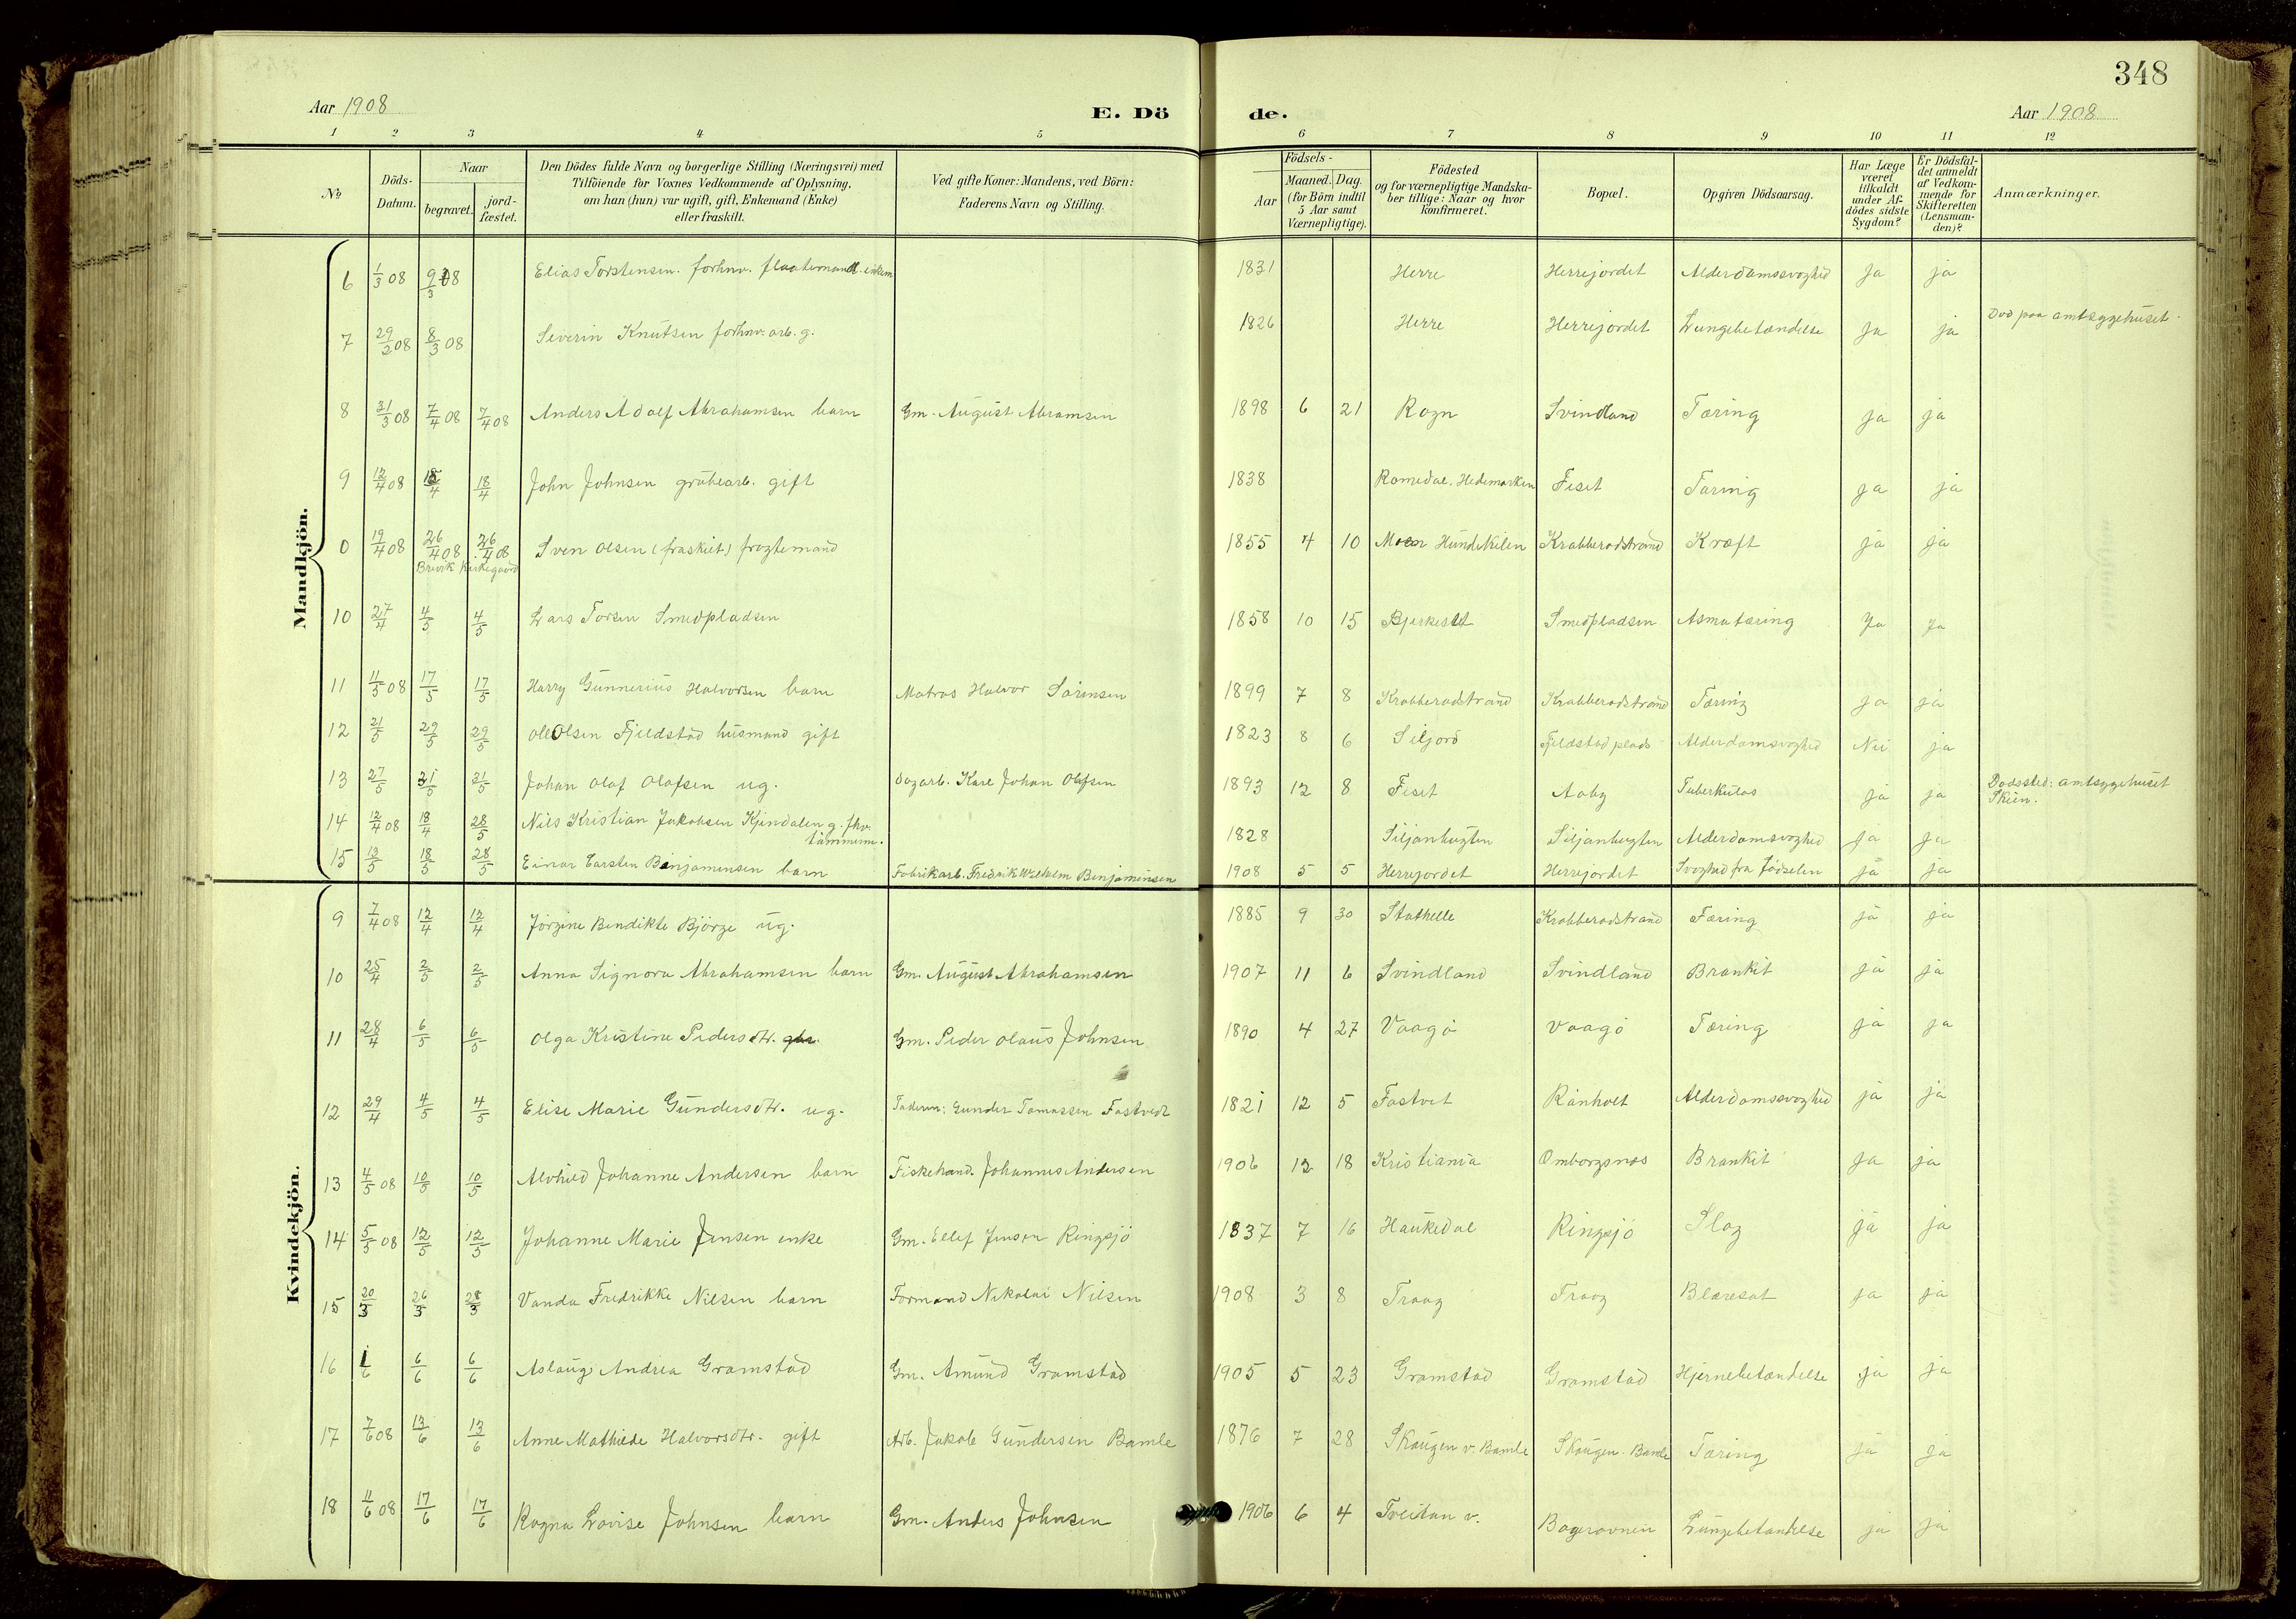 348
Aar 1908 E. Dö de. Aar 1908
1 2 3 4 5 6 7 8 9 10 11 12
No.
Döds-Datum.
Naar
begravet.
jord-fæstet.
Den Dödes fulde Navn og borgerlige Stilling (Næringsvei) med
Tilföiende for Voxnes Vedkommende af Oplysning,
om han (hun) var ugift, gift, Enkemand (Enke)
eller fraskilt.
Ved gifte Koner: Mandens, ved Börn:
Faderens Navn og Stilling.
Födsels-
Aar
Maaned. Dag.
(for Börn indtil
5 Aar samt
Værnepligtige).
Födested
og for værnepligtige Mandska-
ber tillige: Naar og hvor
konfirmeret.
Bopæl.
Opgiven Dödsaarsag.
Har Læge
været
tilkaldt
under Af-
dödes sidste
Sygdom?
Er Dödsfal-
det anmeldt
af Vedkom-
mende for
Skifteretten
(Lensman-
den)?
Anmærkninger.
Mandkjön.
6 1/3 08 9/3 08 Elias Torstensen. forhnv. flaatemand. enkem 1831 Herre Herrejordet Alderdomssvaghed Ja ja
7 29/2 08 8/3 08 Severin Knutsen forhnv. arb. g. 1826 Herre Herrejordet Lungebetændelse Ja ja Død paa amtsygehuset.
8 31/3 08 7/4 08 7/4 08 Anders Adolf Abrahamsen barn Gm. August Abramsen 1898 6 21 Rogn Svindland Tæring ja ja
9 12/4 08 18/4 18/4 John Johnsen grubearb. gift 1838 Romedal. Hedemarken Feset Tæring ja ja
0 19/4 08 26/4 08 26/4 08 Sven Olsen (fraskilt) fragtemand 1855 4 10 Moen Hundekilen Krabberødstrand Kræft ja ja
Brevik Kirkegaard
10 27/4 4/5 4/5 Lars Torsen Smedpladsen 1858 10 15 Bjerkeset Smedpladsen Asmatæring Ja Ja
11 11/5 08 17/5 17/5 Harry Gunnerius Halvorsen barn Matros Halvor Sørensen 1899 7 8 Krabberødstrand Krabberødstrand Tæring ja ja
12 21/5 29/5 29/5 Ole Olsen Fjeldstad husmand gift 1823 8 6 Siljord Fjeldstad plads Alderdomsvaghed Nei ja
13 27/5 31/5 31/5 Johan Olaf Olafsen ug. Dagarb. Karl Johan Olafsen 1893 12 8 Feset Aaby Tuberkulos ja ja Dødssted: amtsygehuset
Skien.
14 12/4 08 18/4 28/5 Nils Kristian Jakobsen Kjendalen g. fhv. 1828 Siljanbugten Siljanbugten Alderdomsvaghed ja ja
tømmerm.
15 13/5 18/5 28/5 Einar Carsten Benjamensen barn Fabrikarb. Fredrik Wilhelm Benjaminsen 1908 5 5 Herrejordet Herrejordet Svaghed fra Fødselen ja ja
Kvindekjön.
9 7/4 08 12/4 12/4 Jørgine Bendikte Bjørge ug. 1885 9 30 Stathelle Krabberødstrand Tæring ja ja
10 25/4 2/5 2/5 Anna Signora Abrahamsen barn Gm. August Abrahamsen 1907 11 6 Svindland Svindland Bronkit ja ja
11 28/4 6/5 6/5 Olga Kristine Pedersdtr. Gm. Peder Olaus Johnsen 1890 4 27 Vaagø Vaagø Tæring ja ja
12 29/4 4/5 4/5 Elise Marie Gundersdtr. ug. Faderen: Gunder Tomassen Fastvedt 1821 12 5 Fastvet Rønholt Alderdomssvaghed ja ja
13 4/5 08 10/5 10/5 Alvhild Johanne Andersen barn Fiskehand. Johannes Andersen 1906 12 18 Kristiania Omborgsnes Bronkit ja ja
14 5/5 08 12/5 12/5 Johanne Marie Jensen enke Gm. Ellef Jenson Ringsjø 1837 7 16 Haukedal Ringsjø Slag ja ja
15 20/3 26/3 28/3 Vanda Fredrikke Nilsen barn Formand Nikolai Nilsen 1908 3 8 Traag Traag Blæresot ja ja
16 1/6 6/6 6/6 Aslaug Andrea Gromstad Gm. Amund Gromstad 1905 5 23 Gromstad Gromstad Hjernebetændelse ja ja
17 7/6 08 13/6 13/6 Anne Mathilde Halvorsdtr. gift Arb. Jakob Gundersen Bamle 1876 7 28 Skaugen v. Bamle Skaugen. Bamle Tæring ja ja
18 11/6 08 17/6 17/6 Ragna Lovise Johnsen barn Gm. Anders Johnsen 1906 6 4 Tveitan v. Bagerovnen Lungebetændelse ja ja